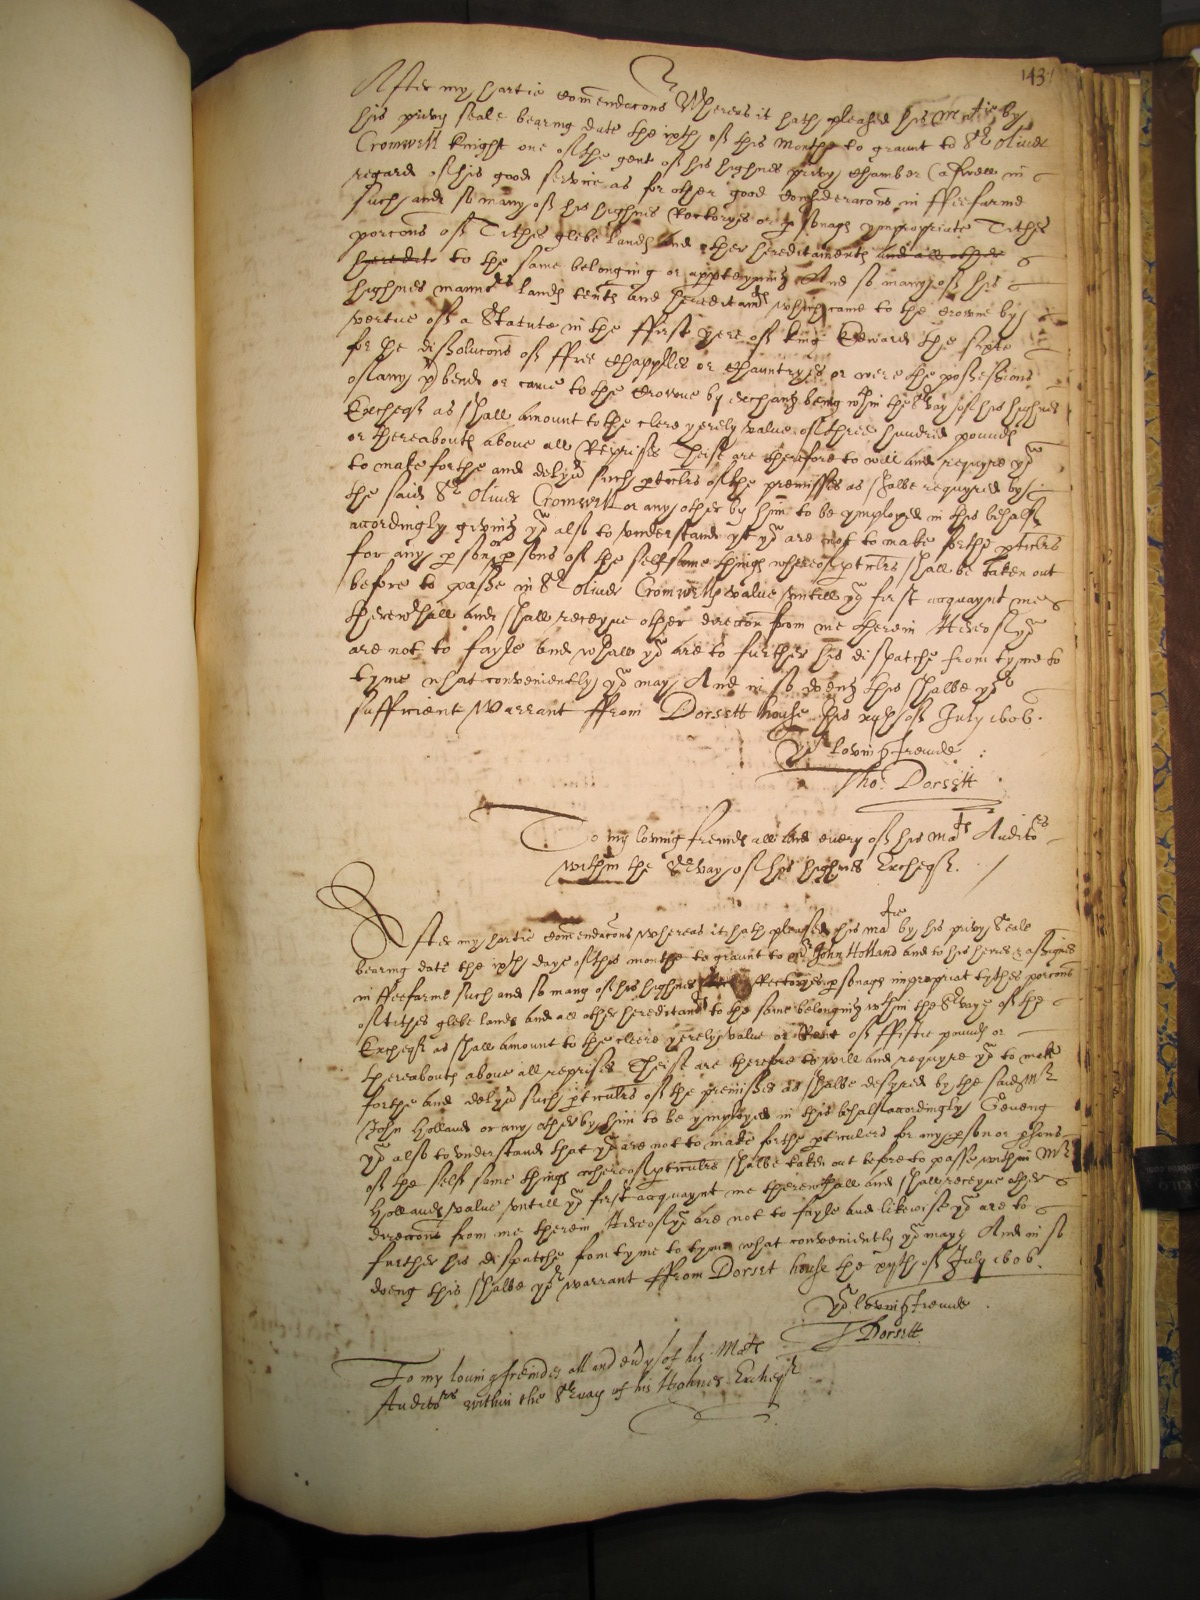 143
After my hartie comendacons Whereas it hath pleased his Matie by
his privy seale bearing date the ixth of this Monthe to graunt to Sr Oliver
Cromwell knight one of the gent of his highnes privy chamber (aswell in
regard of his good service as for other good consideracons in ffeefarme
such and so many of his highnes Rectoryes or psonag ympropriate Tithes
porcons of Tithes glebe land and other hereditaments and all other
heredit to the same belonging or apperteyning And so many of his
highnes mannors lands tents and hereditamts which came to the crowne by
vertue of a Statute in the ffirst yere of King Edward the sixte
for the dissolucons of ffree Chapples or Chauntryes or were the possessions
of any pbend or came to the Crowne by exchang being wthin the Srvay of his highnes
Excheqr as shall amount to the clere yerely value of three hundred pounds
or thereabouts above all Reprises Theise are therefore to will and requyre you
to make forthe and delyver such pticulrs of the premisses as shalbe requyred by
the said Sr Oliver Cromwell or any other by him to be ymployed in this behalf
accordingly giving you also to understand yt you are not to make forthe pticulrs
for any person or psons of the self same things whereof pticulrs shall be taken out
before to passe in Sr Oliver Cromwells value untill you first acquaynt me
therewthall and shall receyve other direccon from me therein Hereof you
are not to fayle and wthall you are to further his dispatche from tyme to
tyme what conveniently you may And in so doeng this shalbe yor
sufficient Warrant ffrom Dorsett house this xvth of July 1606.
Yor loving freinde
Tho: Dorsett
To my loving freinds all and every of his Mats Auditors
within the Srvay of his highnes Excheqr.
After my hartie comendacons whereas it hath pleased his Matie by his privy Seale
bearing date the ixth daye of this monthe to graunt to Mr John Holland and to his heires & assignes
in ffeefarme such and so many of his highnes Rectoryes psonags impropriat tythes porcons
of tithes glebe lands and all other hereditamts to the same belonging wthin the Srvaye of the
Excheqr as shall amount to the clere yerely value or Rent of ffiftie pounds or
thereabouts above all reprises Theise are therefore to will and requyre you to make
forthe and delyver such pticulrs of the premisses as shalbe desyred by the said Mr
John Holland or any other by him to be ymployed in this behalf accordingly Geveng
you also to understand that you are not to make forthe pticulers for any pson or psons
of the self same things whereof pticulrs shalbe taken out before to passe within Mr
Hollands value untill you first acquaynt me therewthall and shall receyve other
direccons from me therein Hereof you are not to fayle and likewise you are to
further his dispatche from tyme to tyme what conveniently you may And in so
doeng this shalbe yor warrant ffrom Dorset house the xvth of July 1606.
Yor loving freinde
T Dorsett
To my loving freindes all and evry of his Mats
Auditors within the Srvay of his Highnes Excheqr